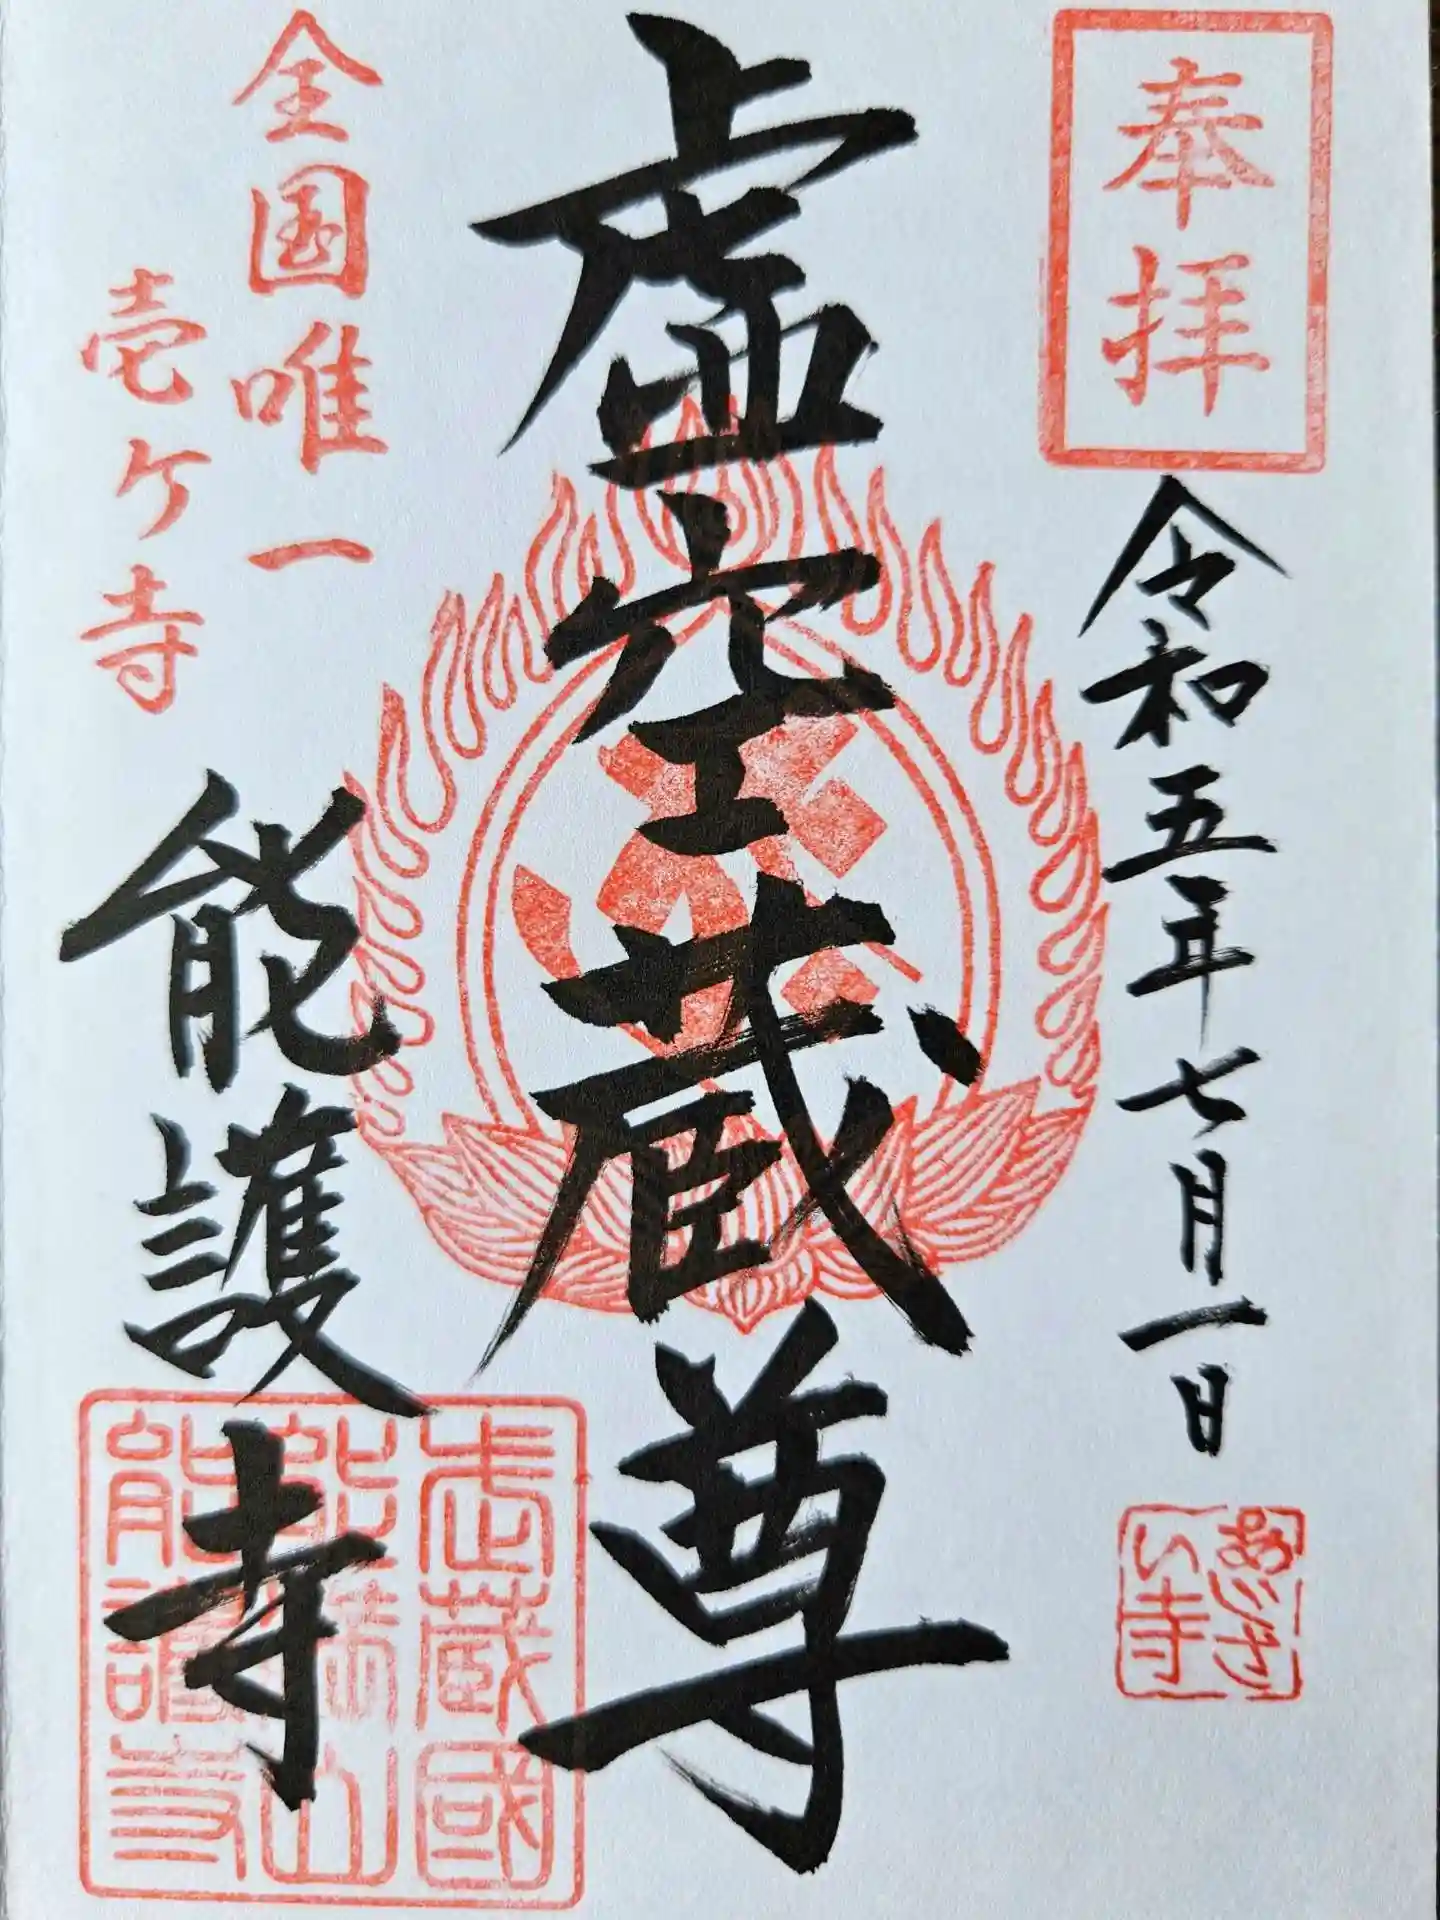 奉拝
令和五年七月一日
虚空蔵尊
全国唯一
壱ケ寺
能護寺
武蔵國
能満山
能護寺
あじさい寺